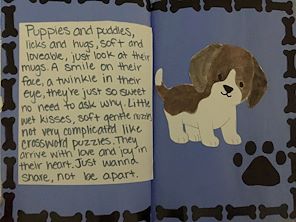 Puppies and puddles,
licks and hugs, soft and
loveable, just look at their
mugs. A smile on their
face, a twinkle in their
eye, they're just so sweet
no need to ask why. Little
wet kisses, soft gentle nuzzles,
not very complicated like
crossword puzzles. They
arrive with love and joy in
their heart. Just wanna
share, not be apart.